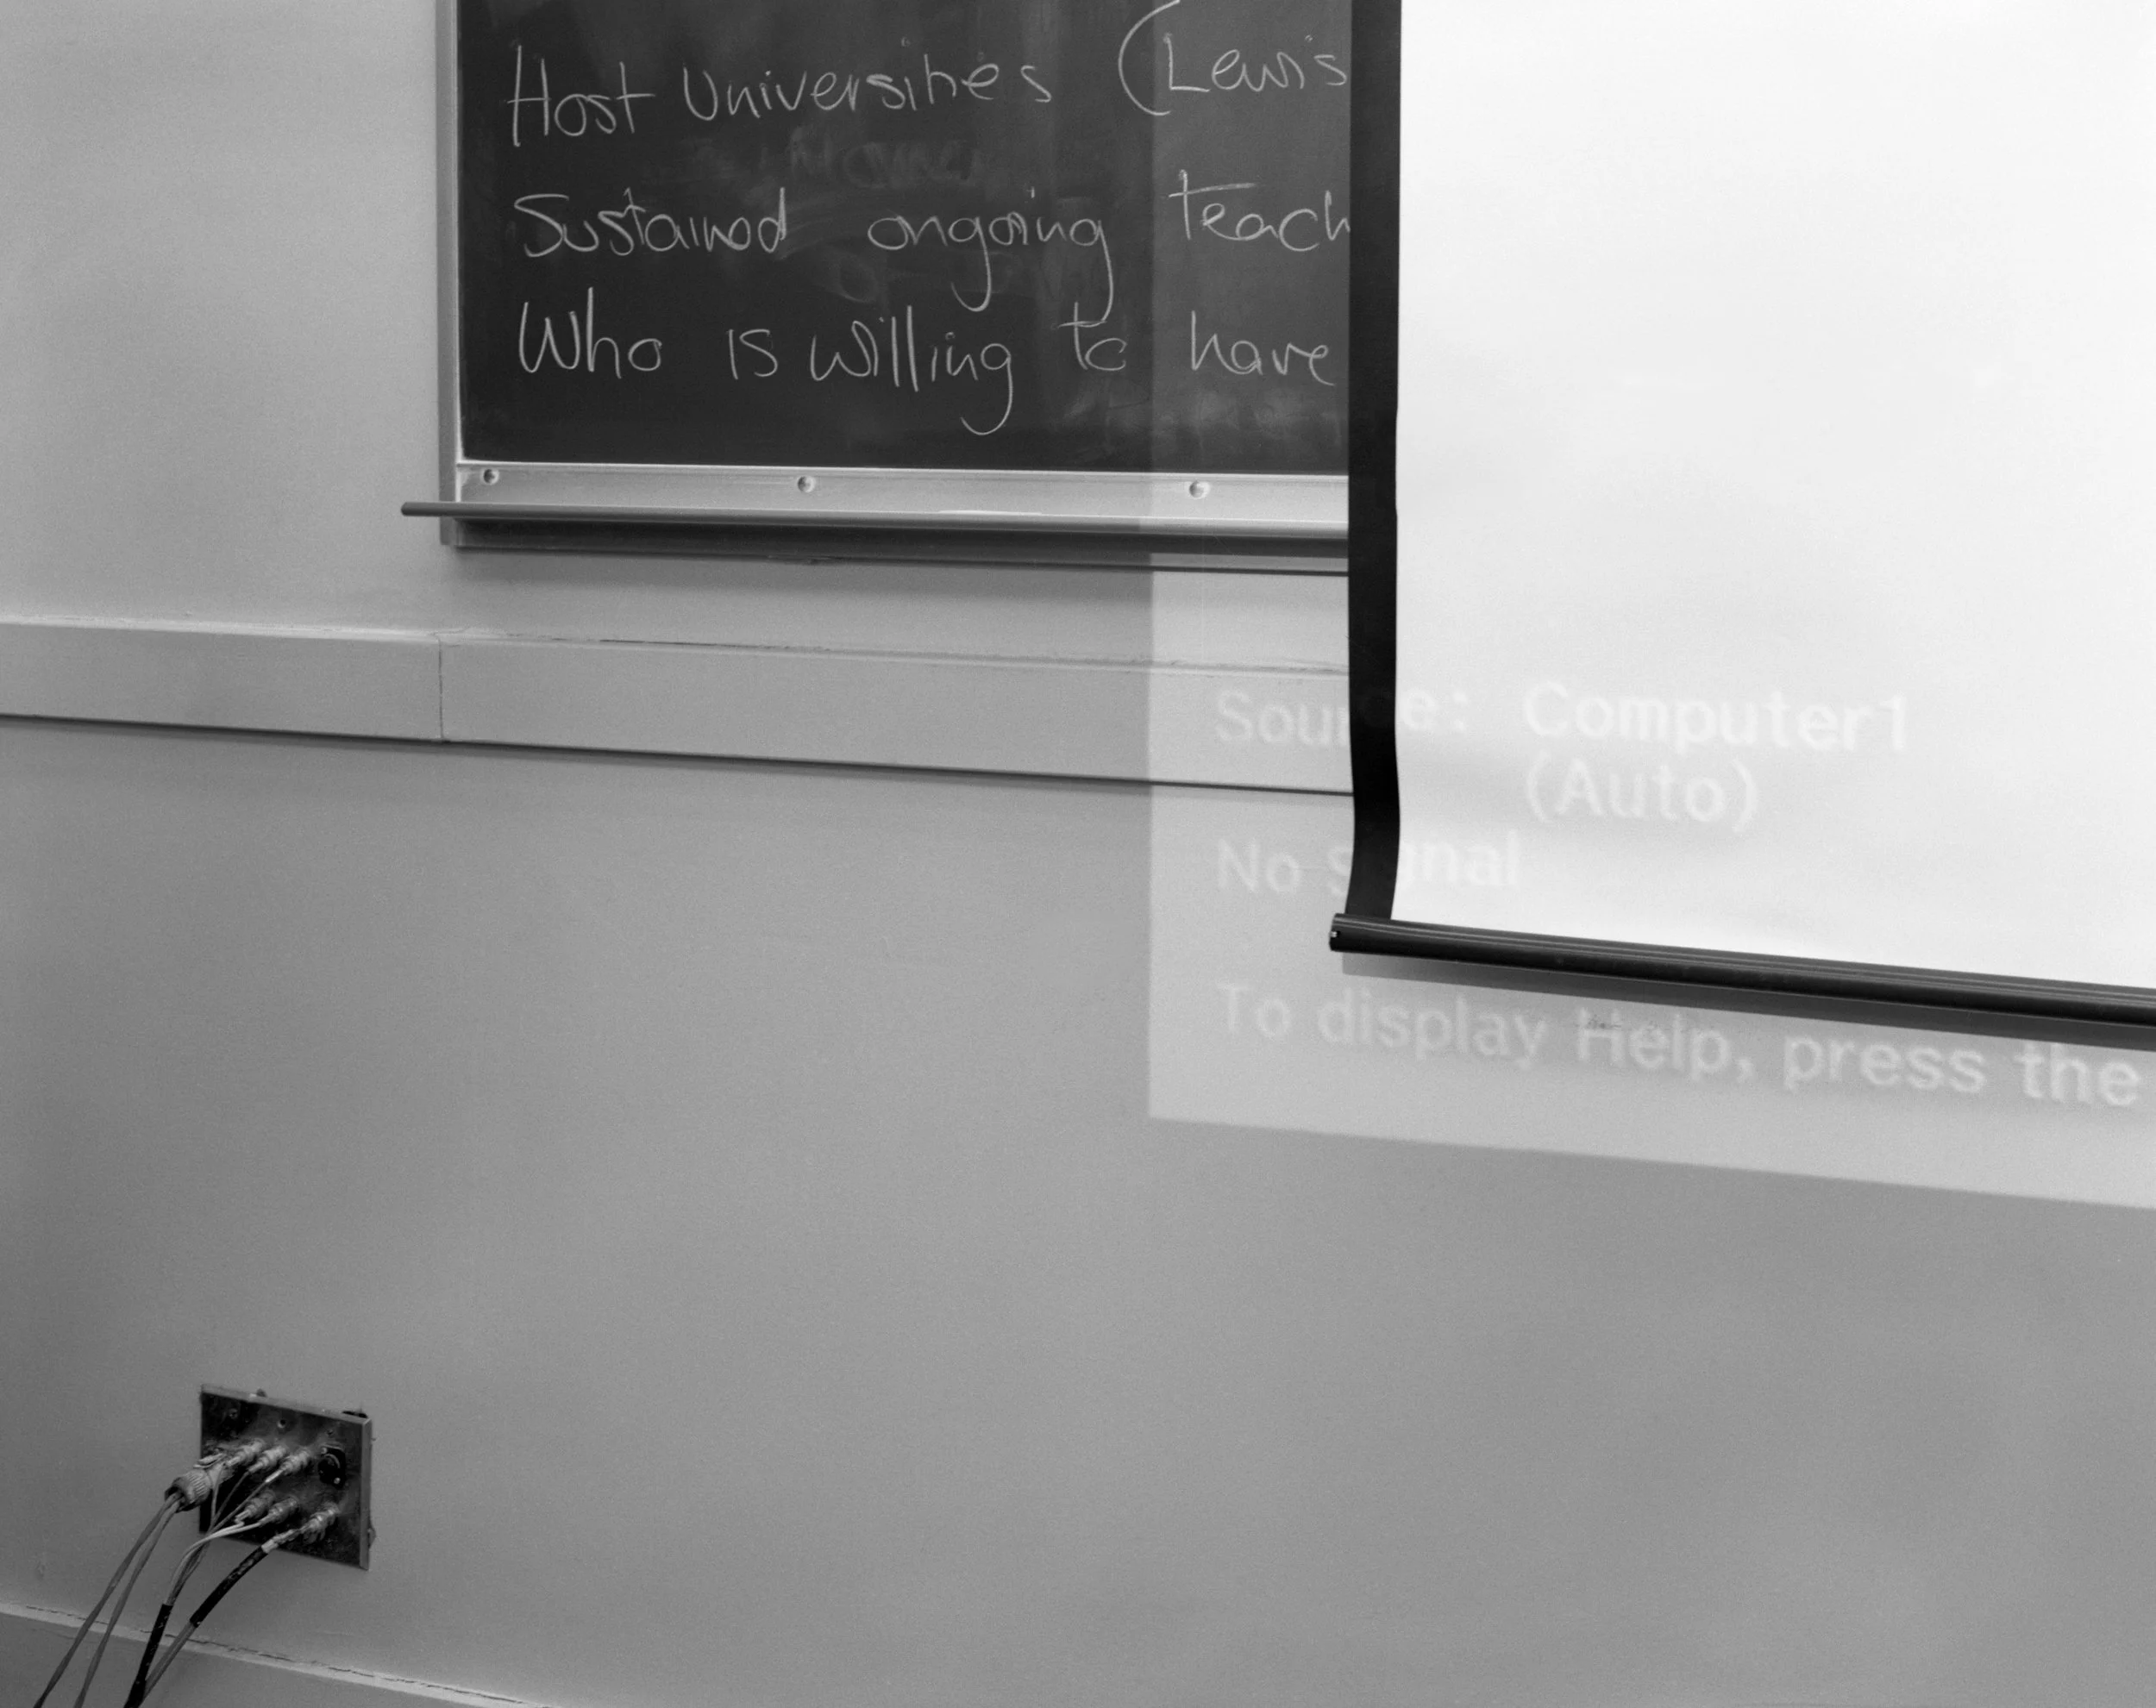 Host Universities (Lewis
Sustained ongoing teach
Who is willing to have
Source: Computer1
(Auto)
No Signal
To display Help, press the